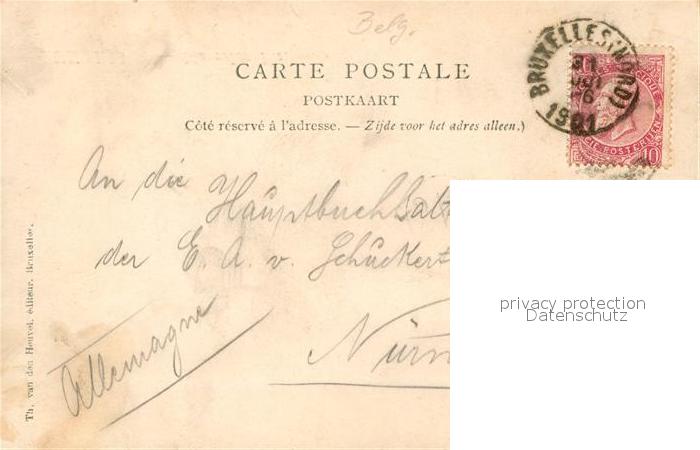 Belg.
CARTE POSTALE
POSTKAART
Côté réservé à l'adresse. — Zijde voor het adres alleen.)
BRUXELLES (NORD)
1901
10
An die
Hauptbuchhalt
der E. A. v. Schuckert
Nürn
Allemagne
Th. van den Heuvel, éditeur, Bruxelles.
privacy protection
Datenschutz